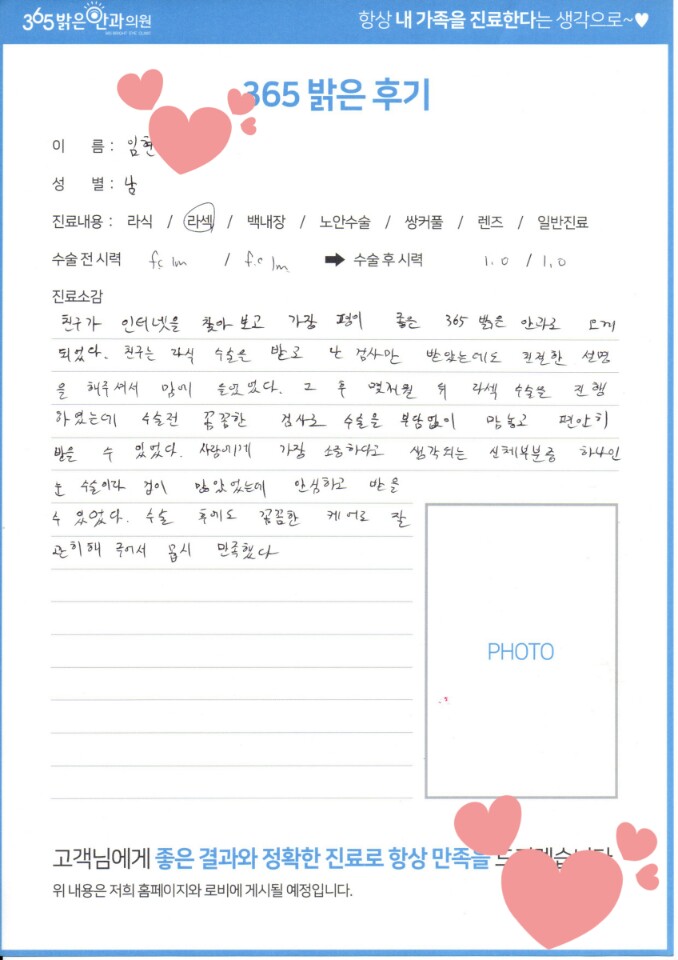 365밝은안과의원
항상 내 가족을 진료한다는 생각으로~♥
365 밝은 후기
이 름 : 임현
성 별 : 남
진료내용 : 라식 / 라섹 / 백내장 / 노안수술 / 쌍커풀 / 렌즈 / 일반진료
수술 전 시력 fc 1m / f.c 1m ➡ 수술 후 시력 1.0 / 1.0
진료소감
친구가 인터넷을 찾아보고 가장 평이 좋은 365 밝은 안과로 오게
되었다. 친구는 라식 수술을 받고 난 검사만 받았는데도 친절한 설명
을 해주셔서 맘에 들었었다. 그 후 몇개월 뒤 라섹 수술을 진행
하였는데 수술전 꼼꼼한 검사로 수술을 부담없이 맘놓고 편안히
받을 수 있었다. 사람에게 가장 소중하다고 생각되는 신체부분중 하나인
눈 수술이라 겁이 많았었는데 안심하고 받을
수 있었다. 수술 후에도 꼼꼼한 케어로 잘
관리해 주어서 몹시 만족했다
PHOTO
고객님에게 좋은 결과와 정확한 진료로 항상 만족을
위 내용은 저희 홈페이지와 로비에 게시될 예정입니다.